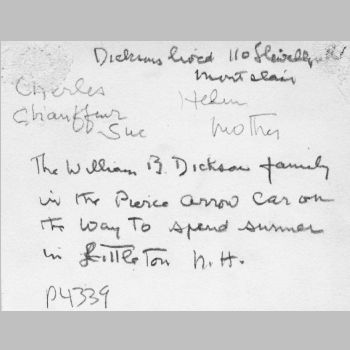 Dicksons lived 110 Llewellyn Rd
Montclair
Charles
Chauffeur
Sue
Helen
Mother
The William B. Dickson family
in the Pierce Arrow car on
the way to spend summer
in Littleton N.H.
P4339